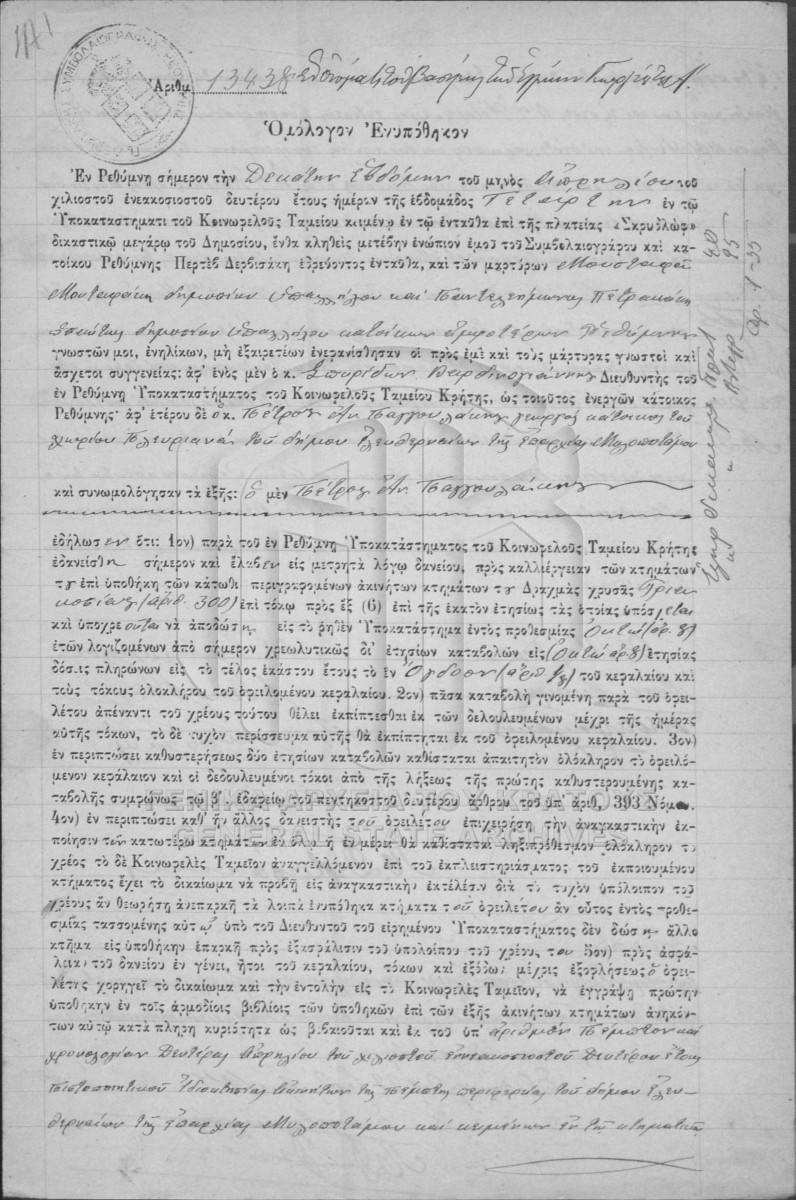 Ἀριθ. 13438 Ἐν ὀνόματι τοῦ Βασιλέως τῶν Ἑλλήνων Γεωργίου τοῦ Α΄.
ΣΥΜΒΟΛΑΙΟΓΡΑΦΟΣ
Ὁμόλογον Ἐνυπόθηκον
Ἐν Ρεθύμνῃ σήμερον τὴν Δεκάτην ἑβδόμην τοῦ μηνὸς Ἀπριλίου τοῦ
χιλιοστοῦ ἐνεακοσιοστοῦ δευτέρου ἔτους ἡμέραν τῆς ἑβδομάδος Τετάρτην ἐν τῷ
Ὑποκαταστήματι τοῦ Κοινωφελοῦς Ταμείου κειμένῳ ἐν τῷ ἐνταῦθα ἐπὶ τῆς πλατείας «Σκρυδλὼφ»
δικαστικῷ μεγάρῳ τοῦ Δημοσίου, ἔνθα κληθεὶς μετέβην ἐνώπιον ἐμοῦ τοῦ Συμβολαιογράφου καὶ κα-
τοίκου Ρεθύμνης Περτὲβ Δερβισάκη ἑδρεύοντος ἐνταῦθα, καὶ τῶν μαρτύρων Μουσταφᾶ
Μουταφάκη δημοσίου ὑπαλλήλου καὶ Παντελεήμωνος Πετρακάκη
δημοσίου ὑπαλλήλου κατοίκων ἀμφοτέρων Ρεθύμνης
γνωστῶν μοι, ἐνηλίκων, μὴ ἐξαιρετέων ἐνεφανίσθησαν οἱ πρὸς ἐμὲ καὶ τοὺς μάρτυρας γνωστοὶ καὶ
ἄσχετοι συγγενείας: ἀφ' ἑνὸς μὲν ὁ κ. Σπυρίδων Βαρδινογιάννης Διευθυντὴς τοῦ
ἐν Ρεθύμνῃ Ὑποκαταστήματος τοῦ Κοινωφελοῦς Ταμείου Κρήτης, ὡς τοιοῦτος ἐνεργῶν κάτοικος
Ρεθύμνης· ἀφ' ἑτέρου δὲ ὁ κ. Πέτρος Ἀν. Παγγουλάκης γεωργὸς κάτοικος τοῦ
χωρίου Πλευριανὰ τοῦ δήμου Ἐλευθερναίων τῆς ἐπαρχίας Μυλοποτάμου
καὶ συνωμολόγησαν τὰ ἑξῆς: ὁ μὲν Πέτρος Ἀν. Παγγουλάκης
ἐδήλωσεν ὅτι: 1ον) παρὰ τοῦ ἐν Ρεθύμνῃ Ὑποκατάστηματος τοῦ Κοινωφελοῦς Ταμείου Κρήτης
ἐδανείσθη σήμερον καὶ ἔλαβεν εἰς μετρητὰ λόγῳ δανείου, πρὸς καλλιέργειαν τῶν κτημάτων
του ἐπὶ ὑποθήκῃ τῶν κάτωθι περιγραφομένων ἀκινήτων κτημάτων του Δραχμὰς χρυσᾶς Τρια-
κοσίας (ἀριθ. 300) ἐπὶ τόκῳ πρὸς ἓξ (6) ἐπὶ τῆς ἑκατὸν ἐτησίως τὰς ὁποίας ὑπόσχεται
καὶ ὑποχρεοῦται νὰ ἀποδώσῃ εἰς τὸ ῥηθὲν Ὑποκατάστημα ἐντὸς προθεσμίας Ὀκτὼ (ἀρ. 8)
ἐτῶν λογιζομένων ἀπὸ σήμερον χρεωλυτικῶς δι' ἐτησίων καταβολῶν εἰς Ὀκτὼ (ἀρ. 8) ἐτησίας
δόσεις πληρώνων εἰς τὸ τέλος ἑκάστου ἔτους τὸ ἓν Ὄγδοον (ἀριθ. 1/8) τοῦ κεφαλαίου καὶ
τοὺς τόκους ὁλοκλήρου τοῦ ὀφειλομένου κεφαλαίου. 2ον) πᾶσα καταβολὴ γινομένη παρὰ τοῦ ὀφει-
λέτου ἀπέναντι τοῦ χρέους τούτου θέλει ἐκπίπτεσθαι ἐκ τῶν δεδουλευμένων μέχρι τῆς ἡμέρας
αὐτῆς τόκων, τὸ δὲ τυχὸν περίσσευμα αὐτῆς θὰ ἐκπίπτηται ἐκ τοῦ ὀφειλομένου κεφαλαίου. 3ον)
ἐν περιπτώσει καθυστερήσεως δύο ἐτησίων καταβολῶν καθίσταται ἀπαιτητὸν ὁλόκληρον τὸ ὀφειλό-
μενον κεφάλαιον καὶ οἱ δεδουλευμένοι τόκοι ἀπὸ τῆς λήξεως τῆς πρώτης καθυστερουμένης κα-
ταβολῆς συμφώνως τῷ β΄. ἐδαφίῳ τοῦ πεντηκοστοῦ δευτέρου ἄρθρου τοῦ ὑπ' ἀριθ. 393 Νόμου.
4ον) ἐν περιπτώσει καθ' ἣν ἄλλος δανειστὴς τοῦ ὀφειλέτου ἐπιχειρήσῃ τὴν ἀναγκαστικὴν ἐκ-
ποίησιν τῶν κατωτέρω κτημάτων ἐν ὅλῳ ἢ ἐν μέρει θὰ καθίσταται ληξιπρόθεσμον ὁλόκληρον τὸ
χρέος τὸ δὲ Κοινωφελὲς Ταμεῖον ἀναγγελλόμενον ἐπὶ τοῦ ἐκπλειστηριάσματος τοῦ ἐκποιουμένου
κτήματος ἔχει τὸ δικαίωμα νὰ προβῇ εἰς ἀναγκαστικὴν ἐκτέλεσιν διὰ τὸ τυχὸν ὑπόλοιπον τοῦ
χρέους ἂν θεωρήσῃ ἀνεπαρκῆ τὰ λοιπὰ ἐνυπόθηκα κτήματα τοῦ ὀφειλέτου ἂν οὗτος ἐντὸς προθε-
σμίας τασσομένης αὐτῷ ὑπὸ τοῦ Διευθυντοῦ τοῦ εἰρημένου Ὑποκαταστήματος δὲν δώσῃ ἄλλο
κτῆμα εἰς ὑποθήκην ἐπαρκῆ πρὸς ἐξασφάλισιν τοῦ ὑπολοίπου τοῦ χρέους του 5ον) πρὸς ἀσφά-
λειαν τοῦ δανείου ἐν γένει, ἤτοι τοῦ κεφαλαίου, τόκων καὶ ἐξόδων μέχρις ἐξοφλήσεως ὁ ὀφει-
λέτης χορηγεῖ τὸ δικαίωμα καὶ τὴν ἐντολὴν εἰς τὸ Κοινωφελὲς Ταμεῖον, νὰ ἐγγράψῃ πρώτην
ὑποθήκην ἐν τοῖς ἁρμοδίοις βιβλίοις τῶν ὑποθηκῶν ἐπὶ τῶν ἑξῆς ἀκινήτων κτημάτων ἀνηκόν-
των αὐτῷ κατὰ πλήρη κυριότητα ὡς βεβαιοῦται καὶ ἐκ τοῦ ὑπ' ἀριθμὸν Πέμπτον καὶ
χρονολογίαν Δευτέρας Ἀπριλίου τοῦ χιλιοστοῦ ἐννεακοσιοστοῦ Δευτέρου ἔτους
πιστοποιητικοῦ ἰδιοκτησίας ἀκινήτων τῆς πέμπτης περιφερείας τοῦ δήμου Ἐλευ-
θερναίων τῆς ἐπαρχίας Μυλοποτάμου καὶ κειμένων ἐν τῇ κτηματικῇ
ΓΕΝΙΚΑ ΑΡΧΕΙΑ ΤΟΥ ΚΡΑΤΟΥΣ
GENERAL STATE ARCHIVES